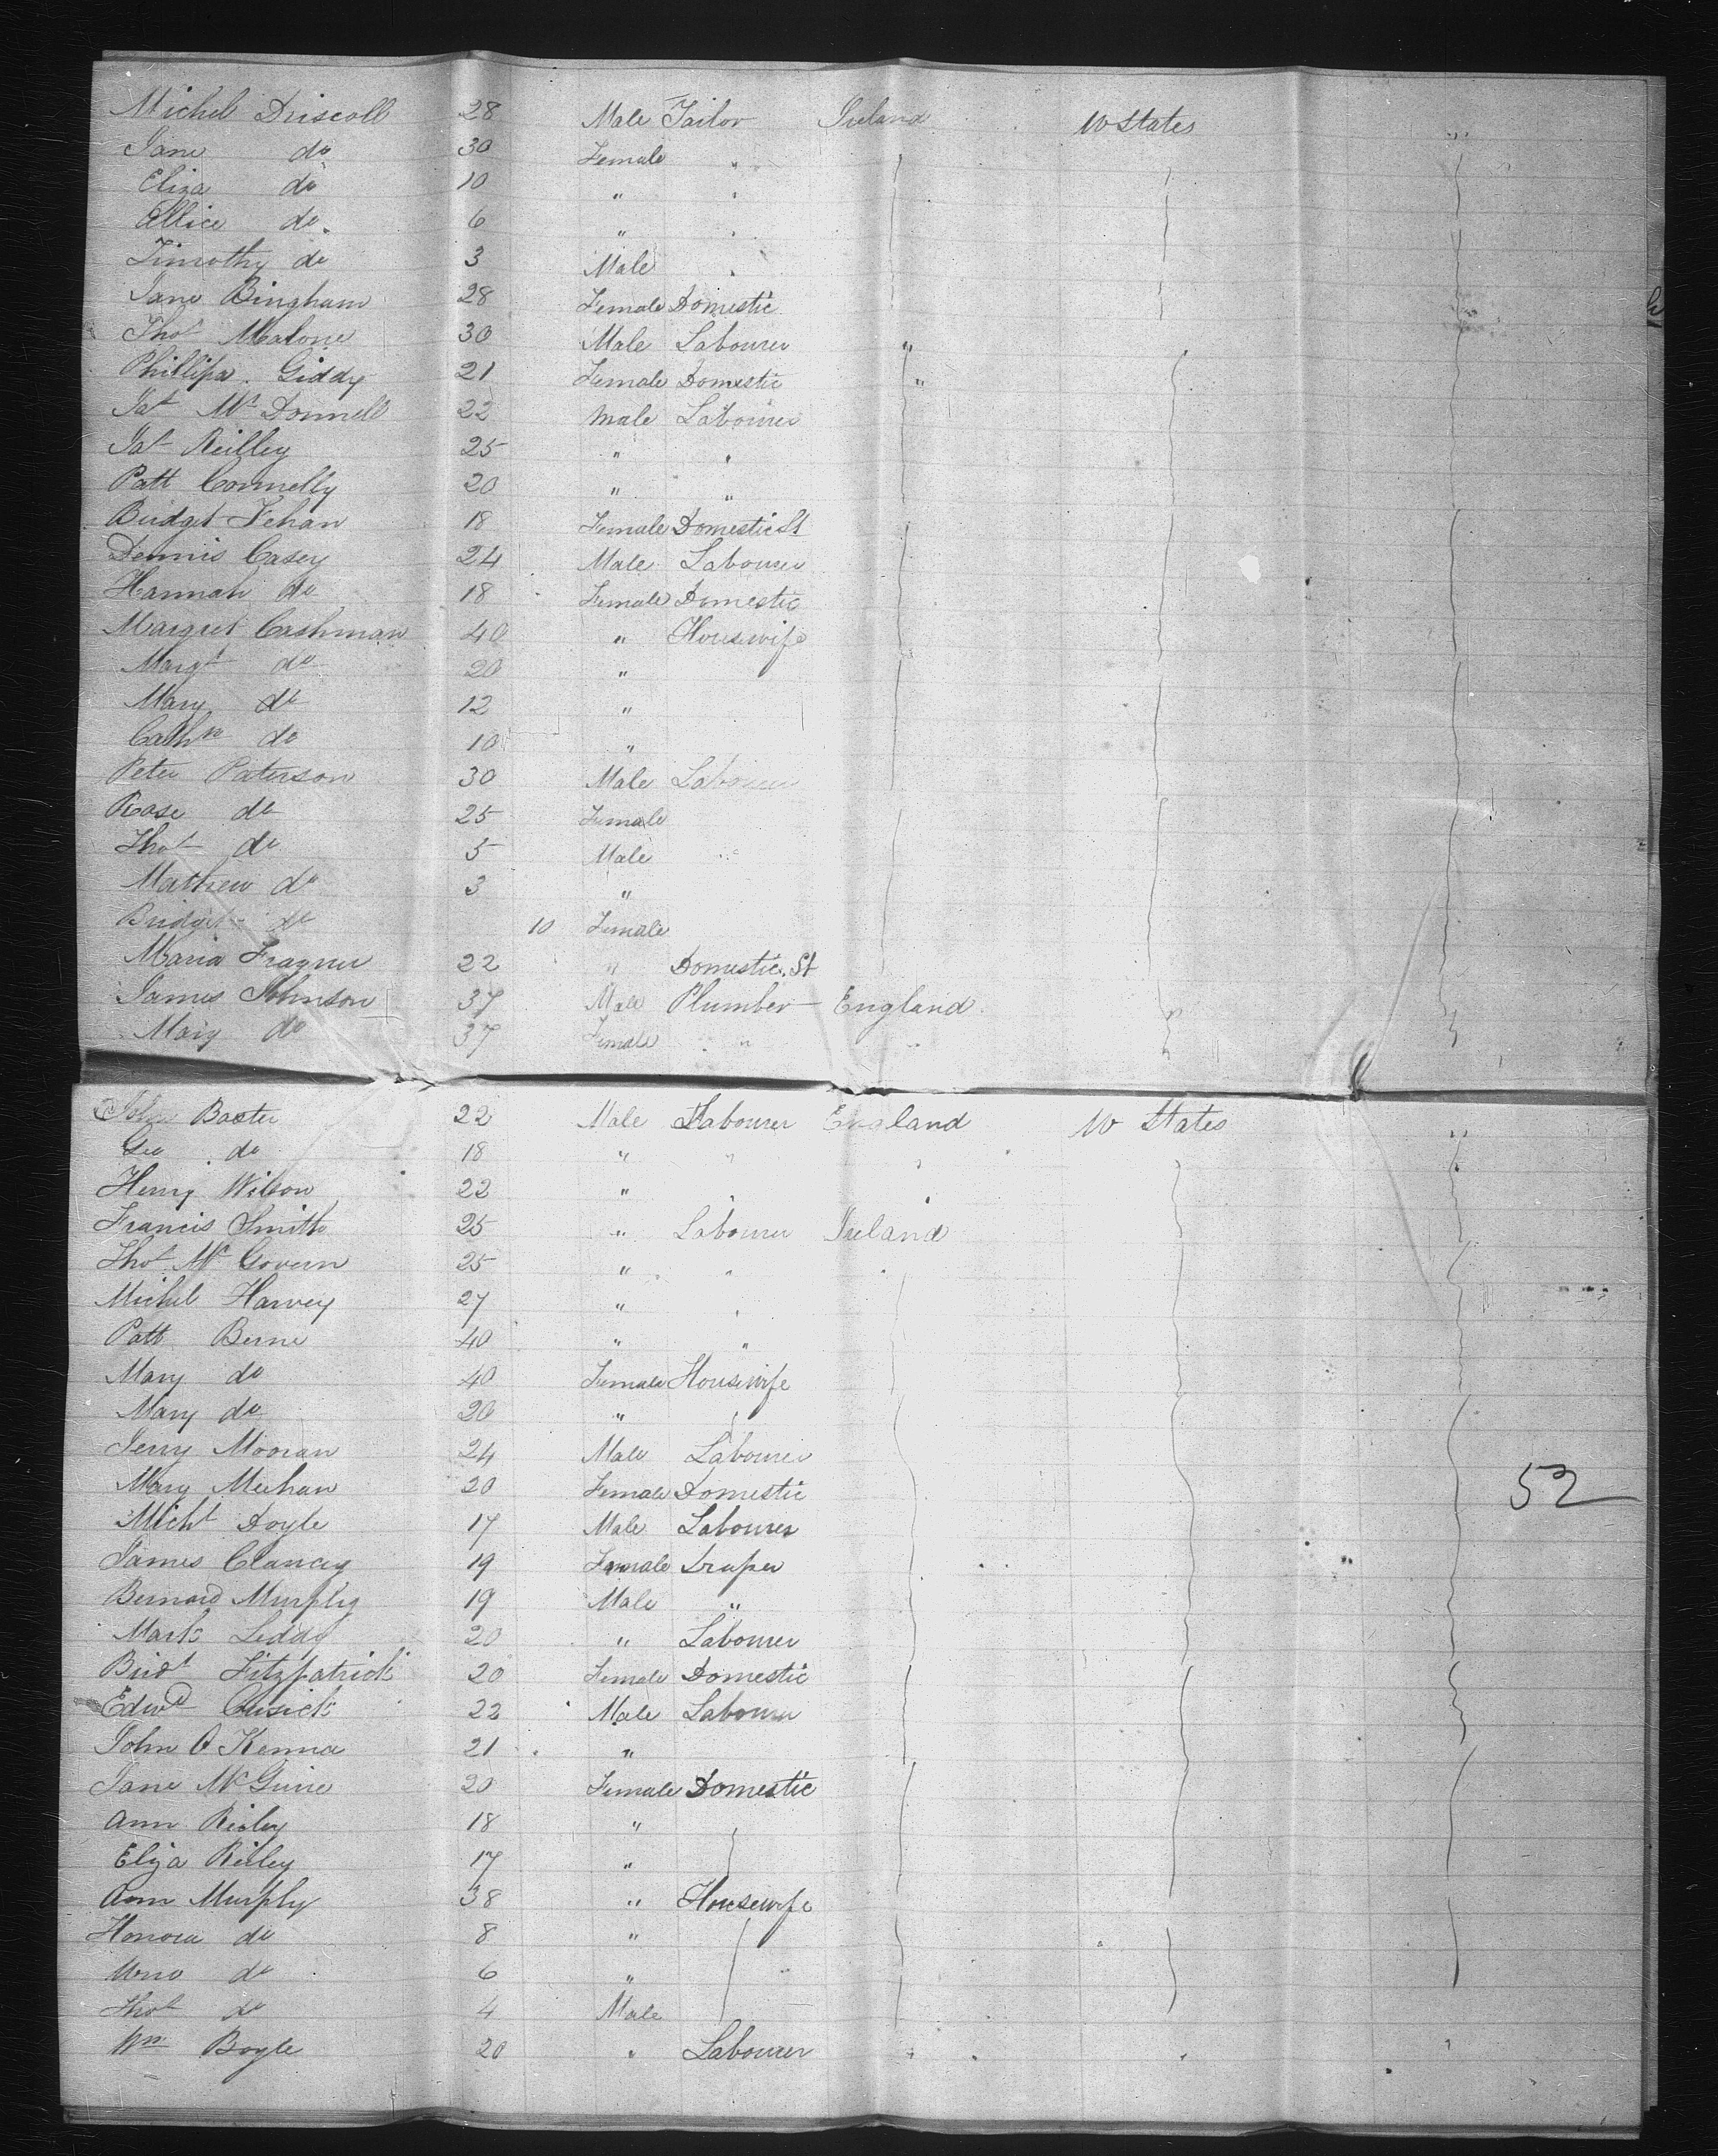 Michel Driscoll 28 Male Tailor Ireland U States "
Jane do 30 Female "
Eliza do 10 " "
Allice do. 6 " "
Timothy do 3 Male "
Jane Bingham 28 Female Domestic
Thos Malone 30 Male Labourer "
Phillipa. Giddy 21 Female Domestic "
Jas McDonnell 22 Male Labourer
Jas Reilley 25 " "
Patt Connelly 20 " "
Bridget Fehan 18 Female Domestic St
Dennis Casey 24 Male Labourer
Hannah do 18 Female Domestic
Margret Cashman 40 " Housewife
Margt do 20 "
Mary do 12 "
Cathn do 10 "
Peter Paterson 30 Male Labourer
Rose do 25 Female
Thos do 5 Male
Mathew do 3 "
Bridget do 10 Female
Maria Fragner 22 " Domestic. St
James Johnson 37 Male Plumber England
Mary do 37 Female " "
John Baxter 22 Male Labourer England U States "
Geo do 18 " " "
Henry Wilson 22 " " "
Francis Smith 25 " Labourer Ireland
Thos McGovern 25 " " "
Michel Harvey 27 " "
Patt Berne 40 " "
Mary do 40 Female Housewife
Mary do 20 "
Jerry Mooran 24 Male Labourer
Mary Meehan 20 Female Domestic
52
Michl Doyle 17 Male Labourer
James Clancey 19 Female Draper
Bernard Murphy 19 Male "
Mark Leddy 20 " Labourer
Bridt Fitzpatrick 20 Female Domestic
Edwd Cusick 22 Male Labourer
John O Kenna 21 "
Jane McGuire 20 Female Domestic
Ann Reiley 18 "
Eliza Reiley 17 "
Ann Murphy 38 " Housewife
Honora do 8 "
do 6 "
Thos do 4 Male
Wm Boyle 20 " Labourer "